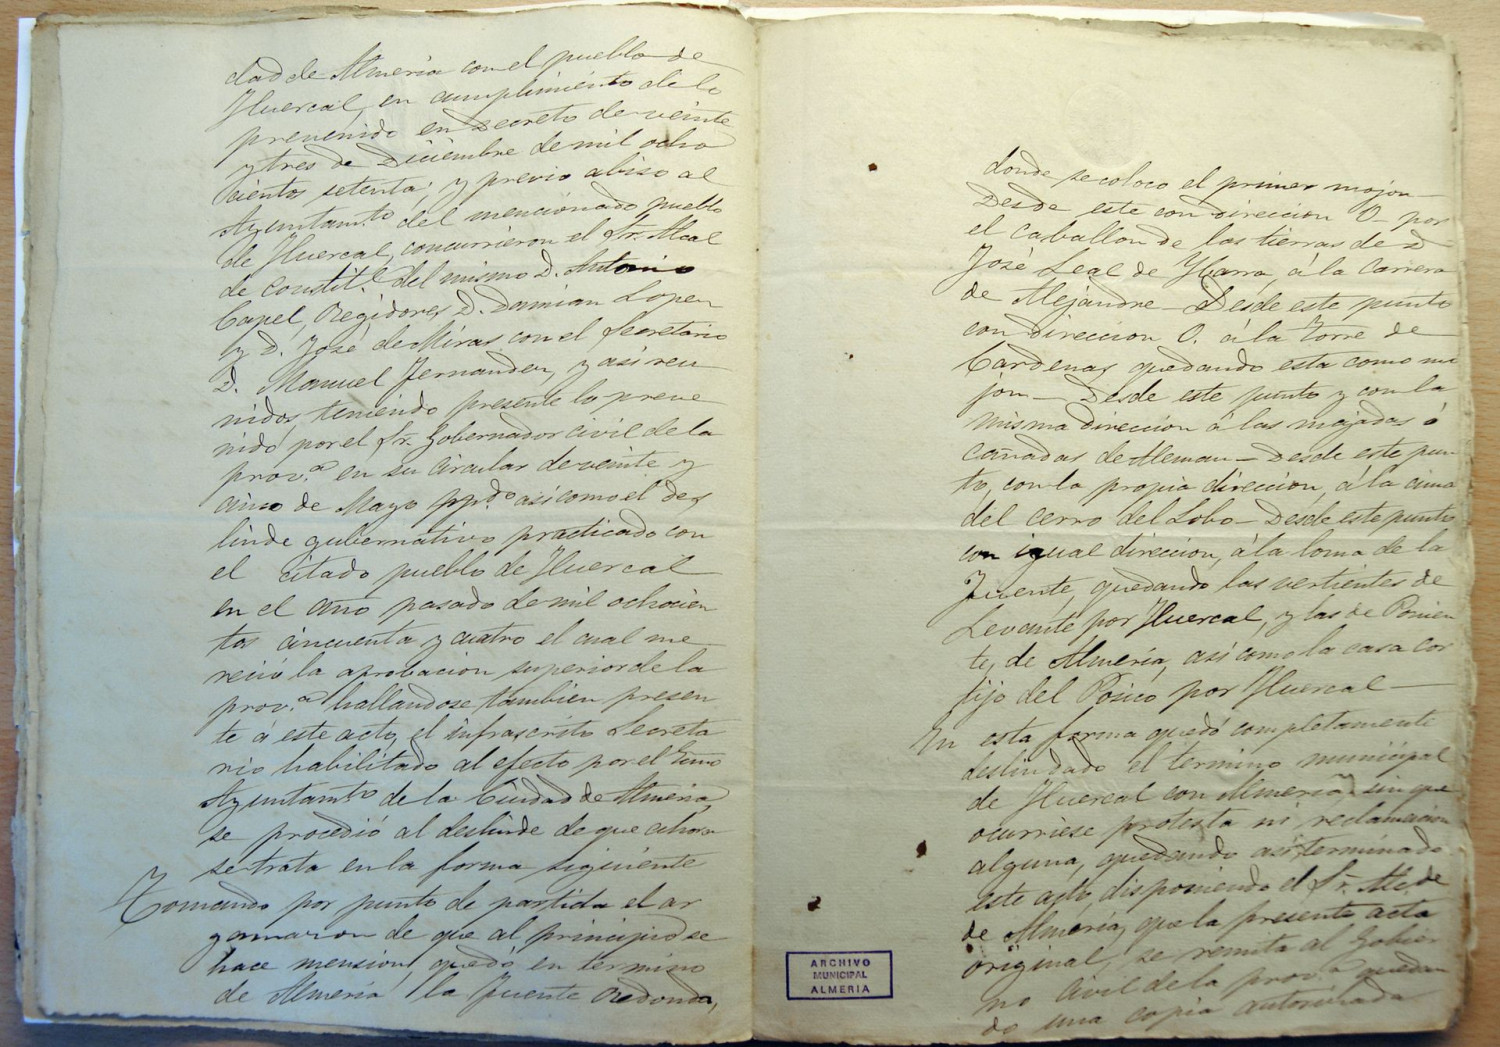 dad de Almeria con el pueblo de
Huercal, en cumplimiento de lo
prevenido en Decreto de veinte
y tres de Diciembre de mil ocho
cientos setenta; y previo abiso al
Ayuntam.to del mencionado pueblo
de Huercal, concurrieron el Sr. Alcal
de Constit.l del mismo D. Antonio
Capel, Regidores D. Damian Lopez
y D. José de Miras con el Secretario
D. Manuel Fernandez, y asi reu
nidos, teniendo presente lo preve
nido por el Sr. Gobernador civil de la
prov.a en su circular de veinte y
cinco de Mayo pp.do asi como el des
linde gubernativo practicado con
el citado pueblo de Huercal
en el año pasado de mil ochocien
tos cincuenta y cuatro el cual me
reció la aprobacion superior de la
prov.a hallandose tambien presen
te á este acto, el infrascrito Secreta
rio habilitado al efecto por el Exmo
Ayuntam.to de la Ciudad de Almeria,
se procedió al deslinde de que ahora
se trata en la forma siguiente
Tomando por punto de partida el ar
gamason de que al principio se
hace mension, quedó en termino
de Almeria la Fuente Redonda,
donde se coloco el primer mojon
Desde este con direccion O. por
el caballon de las tierras de D
José Leal de Ybarra, á la Carrera
de Alejandre — Desde este punto
con direccion O. á la Torre de
Cardenas quedando esta como mo
jon — Desde este punto y con la
misma direccion á las majadas ó
cañadas de Aleman — Desde este pun
to, con la propia direccion, á la cima
del cerro del Lobo — Desde este punto
con igual direccion, á la loma de la
Fuente, quedando las vertientes de
Levante por Huercal, y las de Ponien
te, de Almería, asi como la casa cor
tijo del Posico por Huercal —
En esta forma quedó completamente
deslindado el termino municipal
de Huercal con Almeria, sin que
ocurriese protesta ni reclamacion
alguna, quedando asi terminado
este acto, disponiendo el Sr. Alc.de
de Almería, que la presente acta
original, se remita al Gobier
no Civil de la prov.a quedan
do una copia autorizada
ARCHIVO
MUNICIPAL
ALMERIA